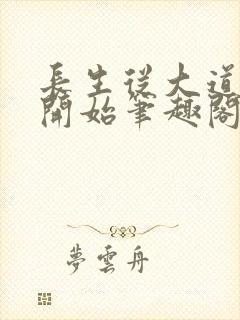 長生從大道
開始筆趣閣
夢雲舟